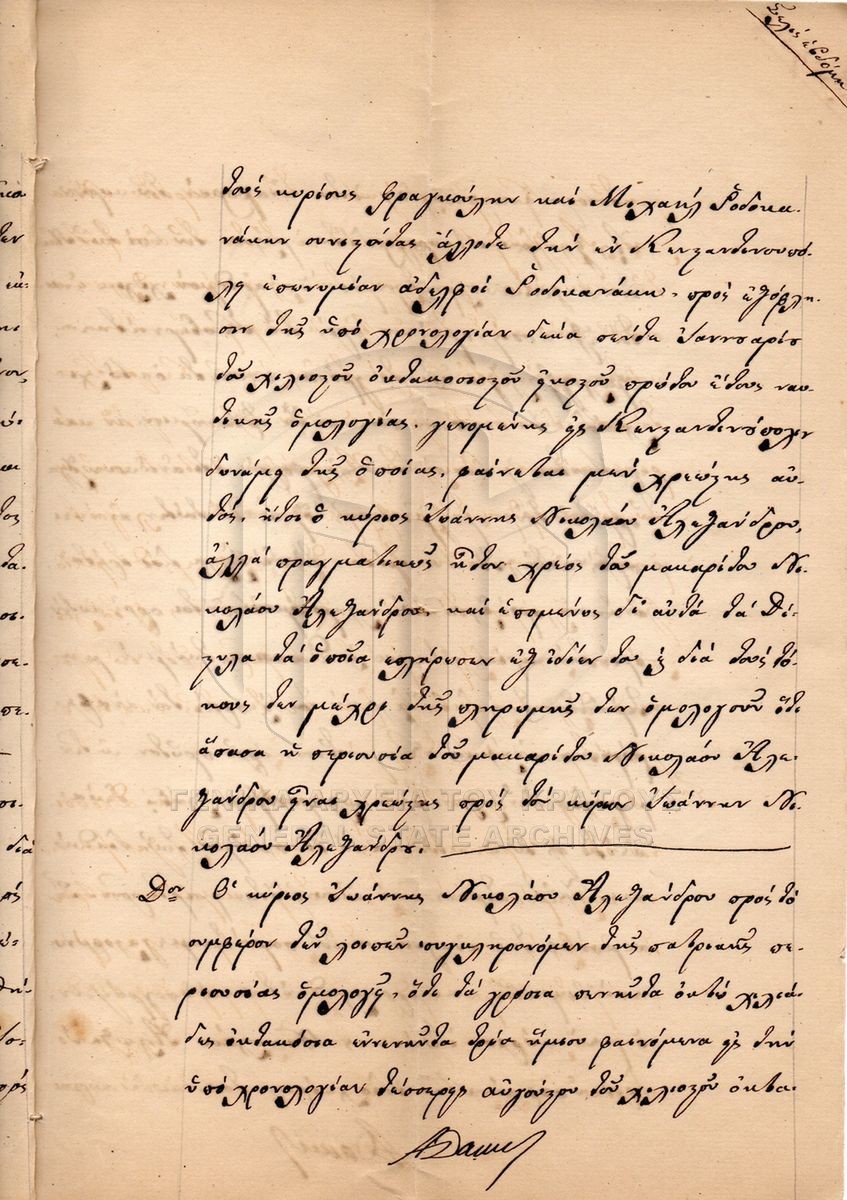 Σελὶς ἑβδόμη
τοὺς κυρίους Φραγκούλην καὶ Μιχαὴλ Ῥοδοκα-
νάκην συνεχόντας ἄλλοτε τὴν ἐν Κωνσταντινουπό-
λῃ ἐπωνυμίαν ἀδελφοὶ Ῥοδοκανάκη, πρὸς ἐξόφλη-
σιν τῆς ὑπὸ χρονολογίαν δέκα πέντε Ἰαννουαρίου
τοῦ χιλιοστοῦ ὀκτακοσιοστοῦ εἰκοστοῦ πρώτου ἔτους ναυ-
τικῆς ὁμολογίας, γενομένης εἰς Κωνσταντινούπολιν
δυνάμει τῆς ὁποίας, φαίνεται μὲν χρεώστης αὐ-
τός, ἤτοι ὁ κύριος Ἰωάννης Νικολάου Ἀλεξάνδρου,
ἀλλὰ πραγματικῶς ἦτον χρέος τοῦ μακαρίτου Νι-
κολάου Ἀλεξάνδρου, καὶ ἑπομένως δι' αὐτὰ τὰ Δί-
στηλα τὰ ὁποῖα ἐπλήρωσεν ἐξ ἰδίων του ᾗ διὰ τοὺς τό-
κους των μέχρι τῆς πληρωμῆς των ὁμολογοῦν ὅτι
ἅπασα ἡ περιουσία τοῦ μακαρίτου Νικολάου Ἀλε-
ξάνδρου εἶναι χρεώστης πρὸς τὸν κύριον Ἰωάννην Νι-
κολάου Ἀλεξάνδρου.
Δον Ὁ κύριος Ἰωάννης Νικολάου Ἀλεξάνδρου πρὸς τὸ
συμφέρον τῶν λοιπῶν συγκληρονόμων τῆς πατρικῆς πε-
ριουσίας ὁμολογεῖ, ὅτι τὰ γρόσια πενῆντα ὀκτὼ χιλιά-
δες ὀκτακόσια ἐννενῆντα τρία ἥμισυ φαινόμενα εἰς τὴν
ὑπὸ χρονολογίαν τέσσερες αὐγούστου τοῦ χιλιοστοῦ ὀκτα-
ΓΕΝΙΚΑ ΑΡΧΕΙΑ ΤΟΥ ΚΡΑΤΟΥΣ
GENERAL STATE ARCHIVES